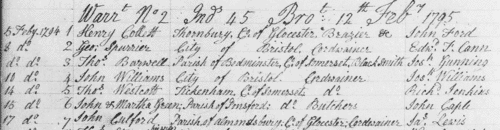 Warrt. No 2 Ind 45 Brot. 12th Feby 1795
5 Feby. 1794 1 Henry Collett Thornbury, C. of Glocester Brazier & John Ford
8 do 2 Geo. Spurrier City of Bristol Cordwainer Edwd. T. Cann
do do 3 Thos. Barwell Parish of Bedminster, C. of Somerset, Blacksmith Jos. Gunning
10 do 4 John Williams City of Bristol Cordwainer Jos. Williams
14 do 5 Thos. Westcott Tickenham, C. of Somerset do Richd. Jenkins
16 do 6 John & Martha Green, Parish of do Butchers John Caple
17 do 7 John Parish of Almondsbury, C. of Glocester, Cordwainer Jas. Lewis